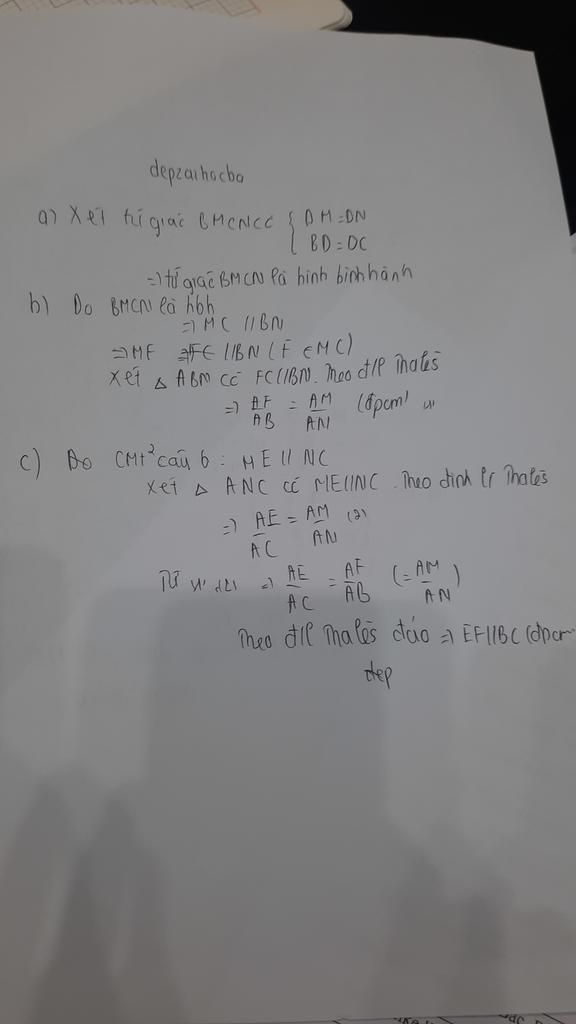 depzaihocba
a) Xét tứ giác BMCN có { DM=DN
BD=DC
=) tứ giác BMCN là hình bình hành
b) Do BMCN là hbh
=) MC // BN
=) MF // BN (F ∈ MC)
Xét △ ABM có FC//BN. Theo đ/l Thalès
=) AF/AB = AM/AN (đpcm) (1)
c) Do CMt² câu b : ME // NC
Xét △ ANC có ME//NC. Theo định lí Thalès
=) AE/AC = AM/AN (2)
Từ (1), (2) =) AE/AC = AF/AB (= AM/AN)
Theo đ/l Thalès đảo =) EF//BC (đpcm
dep